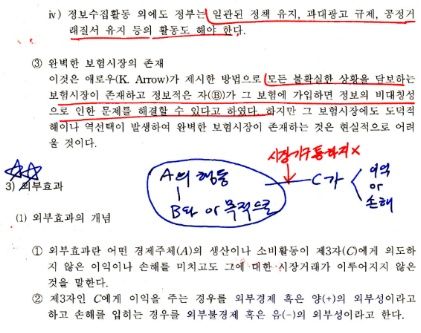 iv) 정보수집활동 외에도 정부는 일관된 정책 유지, 과대광고 규제, 공정거
래질서 유지 등의 활동도 해야 한다.
③ 완벽한 보험시장의 존재
이것은 애로우(K. Arrow)가 제시한 방법으로 모든 불확실한 상황을 담보하는
보험시장이 존재하고 정보적은 자(B)가 그 보험에 가입하면 정보의 비대칭성
으로 인한 문제를 해결할 수 있다고 하였다. 하지만 그 보험시장에도 도덕적
해이나 역선택이 발생하여 완벽한 보험시장이 존재하는 것은 현실적으로 어려
울 것이다.
시장기구 통하지 X
A의 행동
B의 이 목적으로
C가
이익
or
손해
3) 외부효과
(1) 외부효과의 개념
① 외부효과란 어떤 경제주체(A)의 생산이나 소비활동이 제3자(C)에게 의도하
지 않은 이익이나 손해를 미치고도 그에 대한 시장거래가 이루어지지 않은
것을 말한다.
② 제3자인 C에게 이익을 주는 경우를 외부경제 혹은 양(+)의 외부성이라고
하고 손해를 입히는 경우를 외부불경제 혹은 음(-)의 외부성이라고 한다.